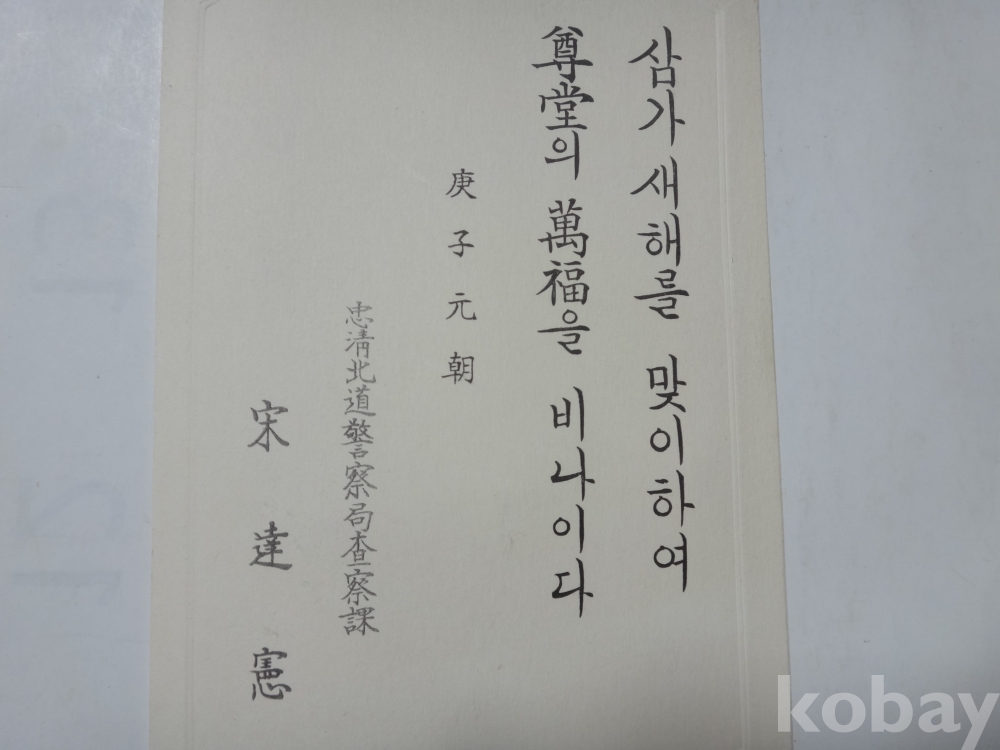 삼가 새해를 맞이하여
尊堂의 萬福을 비나이다
庚子元朝
忠淸北道警察局査察課
宋達憲
kobay